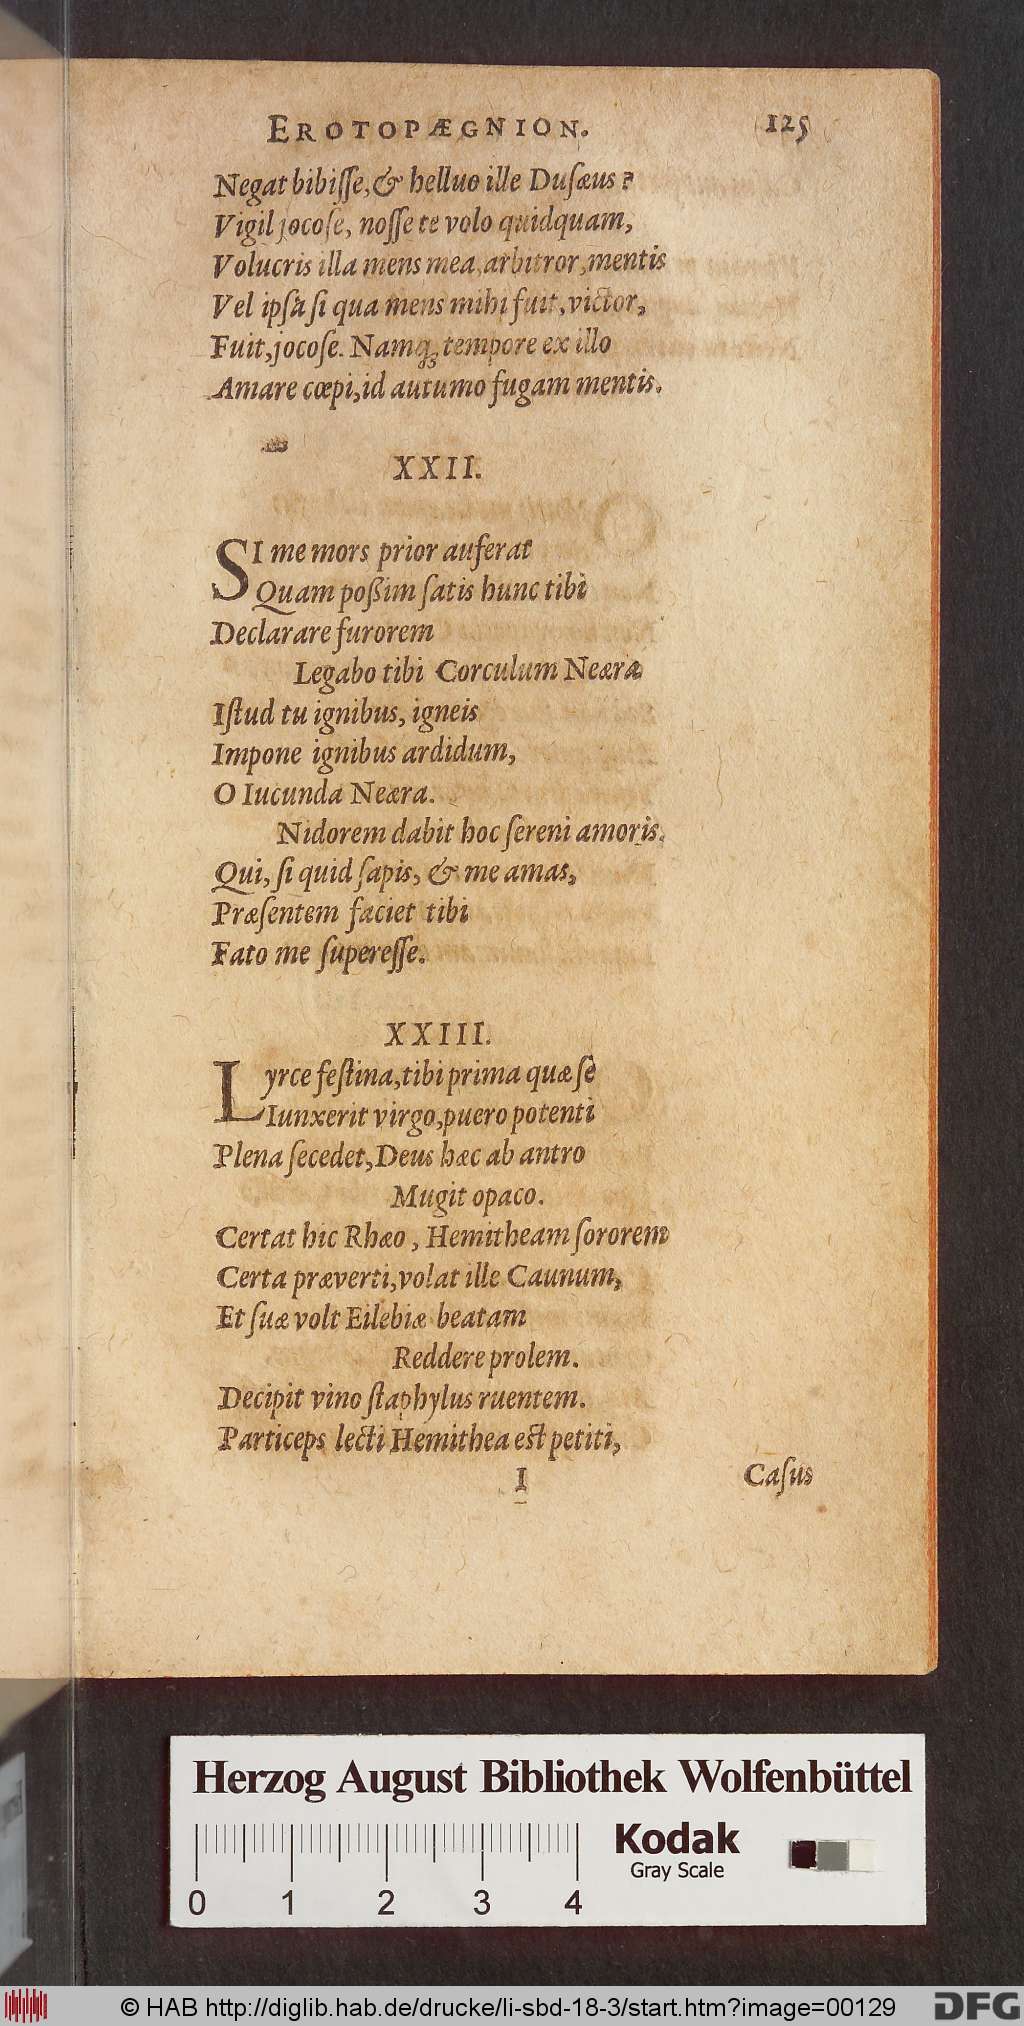 EROTOPÆGNION. 125
Negat bibiſſe, & helluo ille Duſæus?
Vigil jocoſe, noſſe te volo quidquam,
Volucris illa mens mea, arbitror, mentis
Vel ipſa ſi qua mens mihi fuit, victor,
Fuit, jocoſe. Namq; tempore ex illo
Amare cœpi, id autumo fugam mentis.
XXII.
SI me mors prior auferat
Quam poßim ſatis hunc tibi
Declarare furorem
Legabo tibi Corculum Neæra
Iſtud tu ignibus, igneis
Impone ignibus ardidum,
O Iucunda Neæra.
Nidorem dabit hoc ſereni amoris.
Qui, ſi quid ſapis, & me amas,
Præſentem faciet tibi
Fato me ſupereſſe.
XXIII.
Lyrce feſtina, tibi prima quæ ſe
Iunxerit virgo, puero potenti
Plena ſecedet, Deus hæc ab antro
Mugit opaco.
Certat hic Rhæo, Hemitheam ſororem
Certa præverti, volat ille Caunum,
Et ſuæ volt Eilebiæ beatam
Reddere prolem.
Decipit vino ſtaphylus ruentem.
Particeps lecti Hemithea eſt petiti,
I Caſus
Herzog August Bibliothek Wolfenbüttel
Kodak
Gray Scale
0 1 2 3 4
© HAB http://diglib.hab.de/drucke/li-sbd-18-3/start.htm?image=00129 DFG